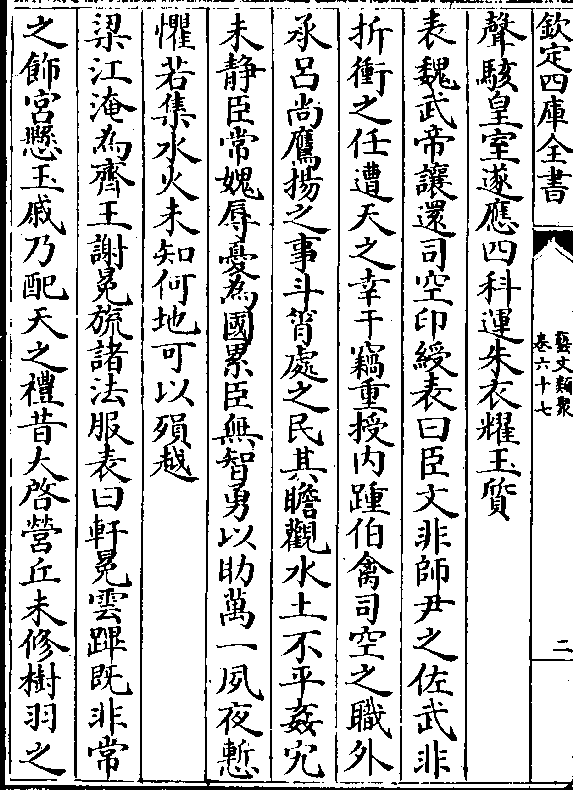 欽定四庫全書
藝文類聚
卷六十七
二
聲駭皇室遂應四科運朱衣耀玉質
表魏武帝讓還司空印綬表曰臣文非師尹之佐武非
折衝之任遭天之幸干竊重授内踵伯禽司空之職外
承呂尚鷹揚之事斗筲處之民其瞻觀水土不平姦宄
未静臣常媿辱憂為國累臣無智勇以助萬一夙夜慙
懼若集水火未知何地可以殞越
梁江淹為齊王謝冕旒諸法服表曰軒冕雲蹕既非常
之飾宮懸玉戚乃配天之禮昔大啓營丘未修樹羽之